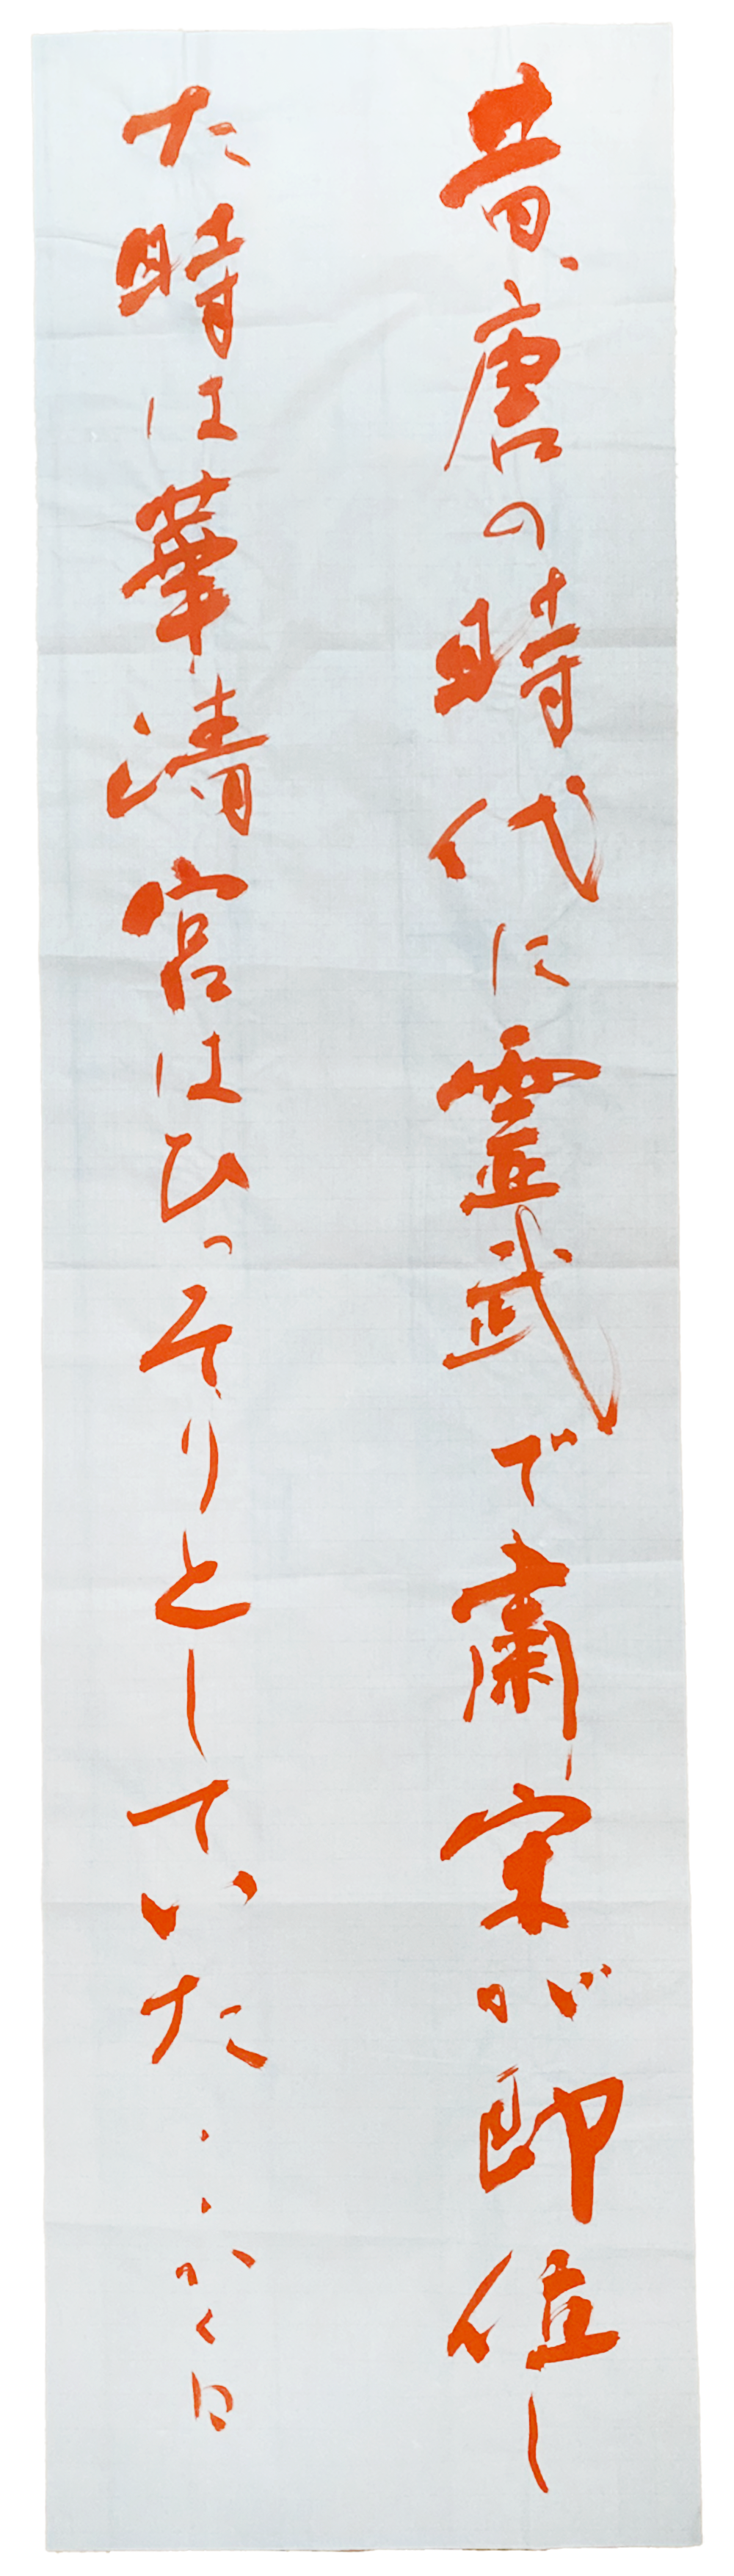 昔、唐の時代に霊武で粛宗が即位し
た時は華清宮はひっそりとしていた・・かく口